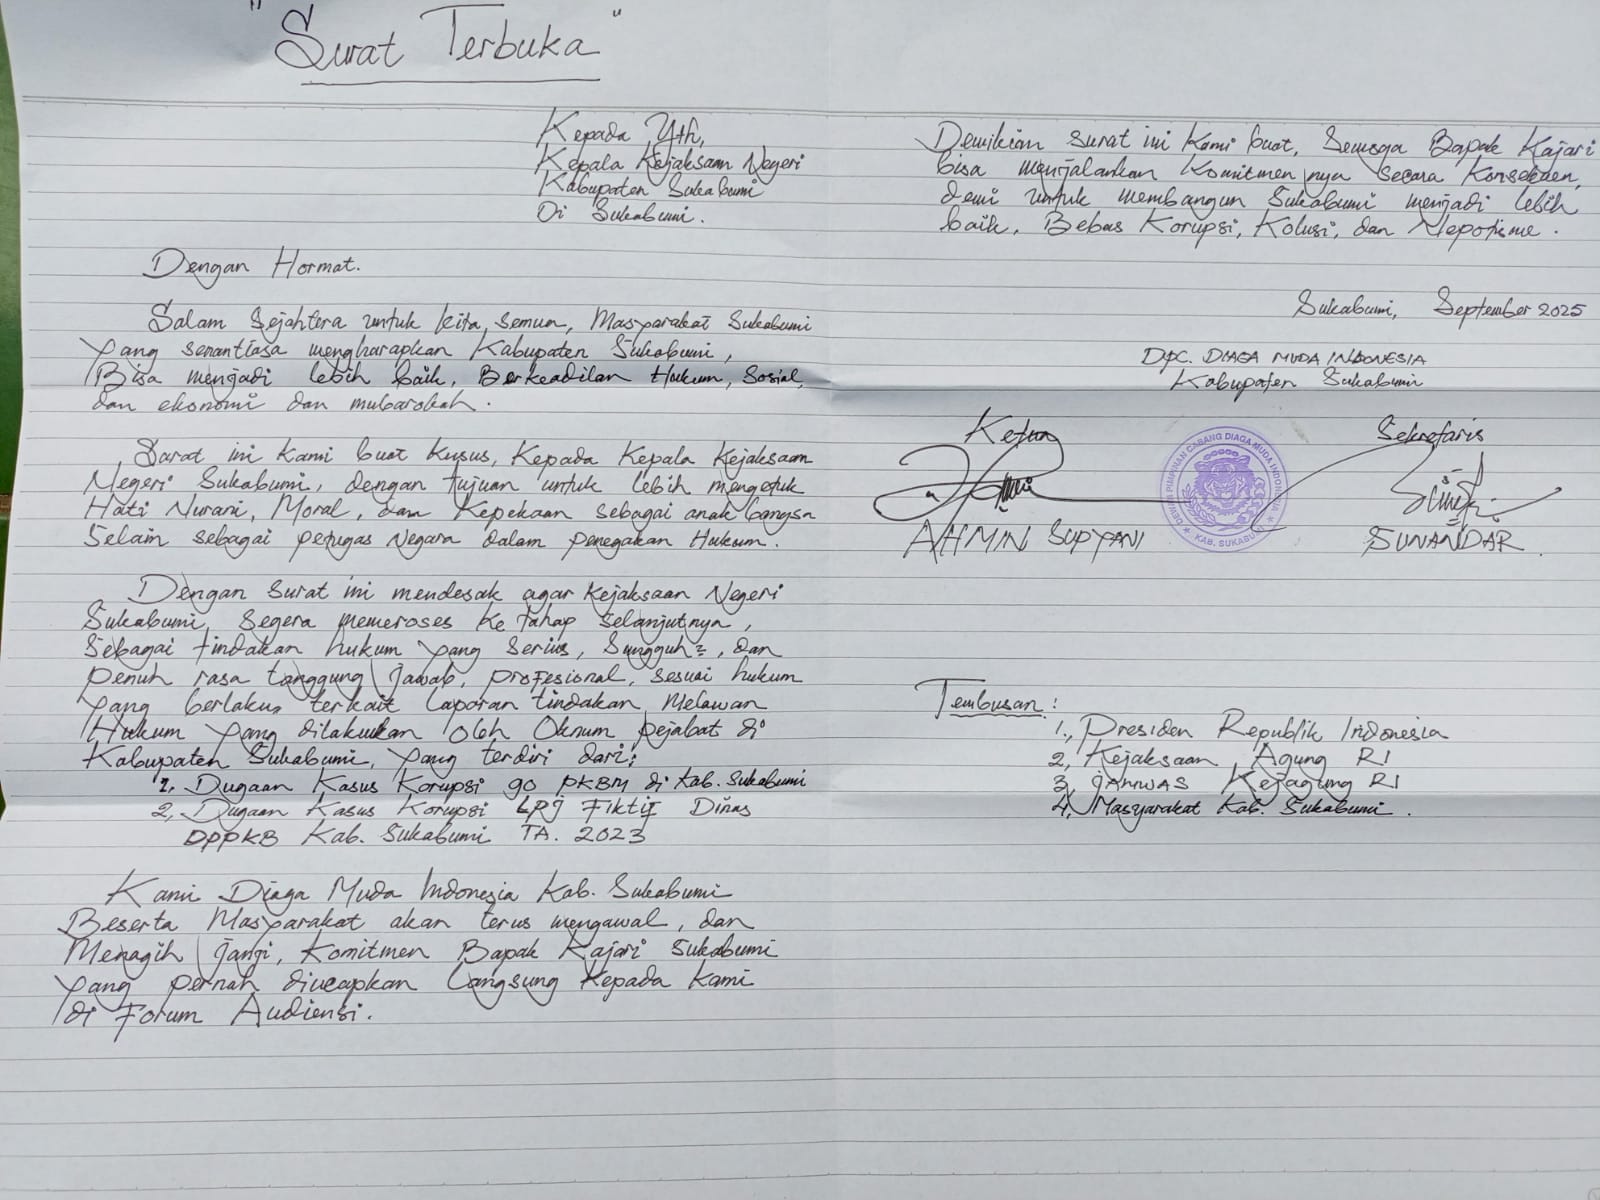 "Surat Terbuka"
Kepada Yth,
Kepala Kejaksaan Negeri
Kabupaten Sukabumi
Di Sukabumi.
Dengan Hormat.
Salam Sejahtera untuk kita semua, Masyarakat Sukabumi
yang senantiasa mengharapkan Kabupaten Sukabumi,
Bisa menjadi lebih baik, Berkeadilan Hukum, Sosial,
dan ekonomi dan mubarokah.
Surat ini kami buat kusus, Kepada Kepala Kejaksaan
Negeri Sukabumi, dengan tujuan untuk lebih mengetuk
Hati Nurani, Moral, dan Kepekaan sebagai anak bangsa
Selain sebagai petugas Negara dalam penegakan Hukum.
Dengan Surat ini mendesak agar Kejaksaan Negeri
Sukabumi, segera memeroses ke tahap selanjutnya,
Sebagai tindakan hukum yang serius, Sungguh², dan
penuh rasa tanggung Jawab, profesional, sesuai hukum
yang berlaku, terkait Laporan tindakan Melawan
Hukum yang dilakukan oleh Oknum pejabat di
Kabupaten Sukabumi, yang terdiri dari;
1, Dugaan Kasus Korupsi 90 PKBM di Kab. Sukabumi
2, Dugaan Kasus Korupsi LPJ Fiktif Dinas
DPPKB Kab. Sukabumi TA. 2023
Kami Diaga Muda Indonesia Kab. Sukabumi
Beserta Masyarakat akan terus mengawal, dan
Menagih Janji, Komitmen Bapak Kajari Sukabumi
yang pernah diucapkan Langsung Kepada Kami
di Forum Audiensi.
Demikian Surat ini Kami buat, Semoga Bapak Kajari
bisa menjalankan Komitmen nya secara Konsekuen,
demi untuk membangun Sukabumi menjadi lebih
baik, Bebas Korupsi, Kolusi, dan Nepotisme.
Sukabumi, September 2025
DPC. DIAGA MUDA INDONESIA
Kabupaten Sukabumi
Ketua
Sekretaris
DEWAN PIMPINAN CABANG DIAGA MUDA INDONESIA
KAB. SUKABUMI
AHMIN SUPYANI
SUNANDAR
Tembusan :
1., Presiden Republik Indonesia
2, Kejaksaan Agung RI
3, JAMWAS Kejagung RI
4, Masyarakat Kab. Sukabumi.